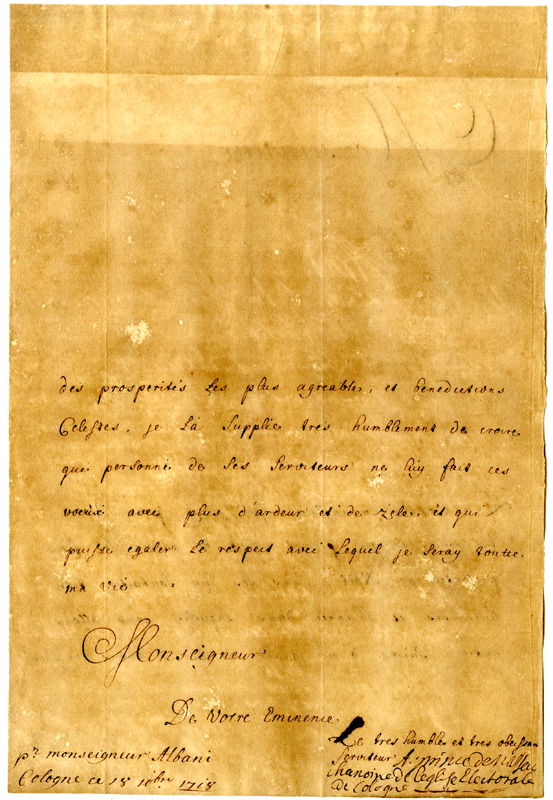 des prosperités Les plus agreable, et benedictions
Celestes. je La Supplie tres humblement de croire
que personne de Ses Serviteurs ne Luy fait ces
voeux avec plus d'ardeur et de zele, et qui
puisse egaler Le respect avec Lequel je Seray toutte
ma vie
Monseigneur
De Votre Eminence
Le tres humble et tres obeissan
Serviteur prince de Nassau
chanoine de L'eglise Electorale
de Cologne
pr monseigneur Albani
Cologne ce 18 10bre 1718